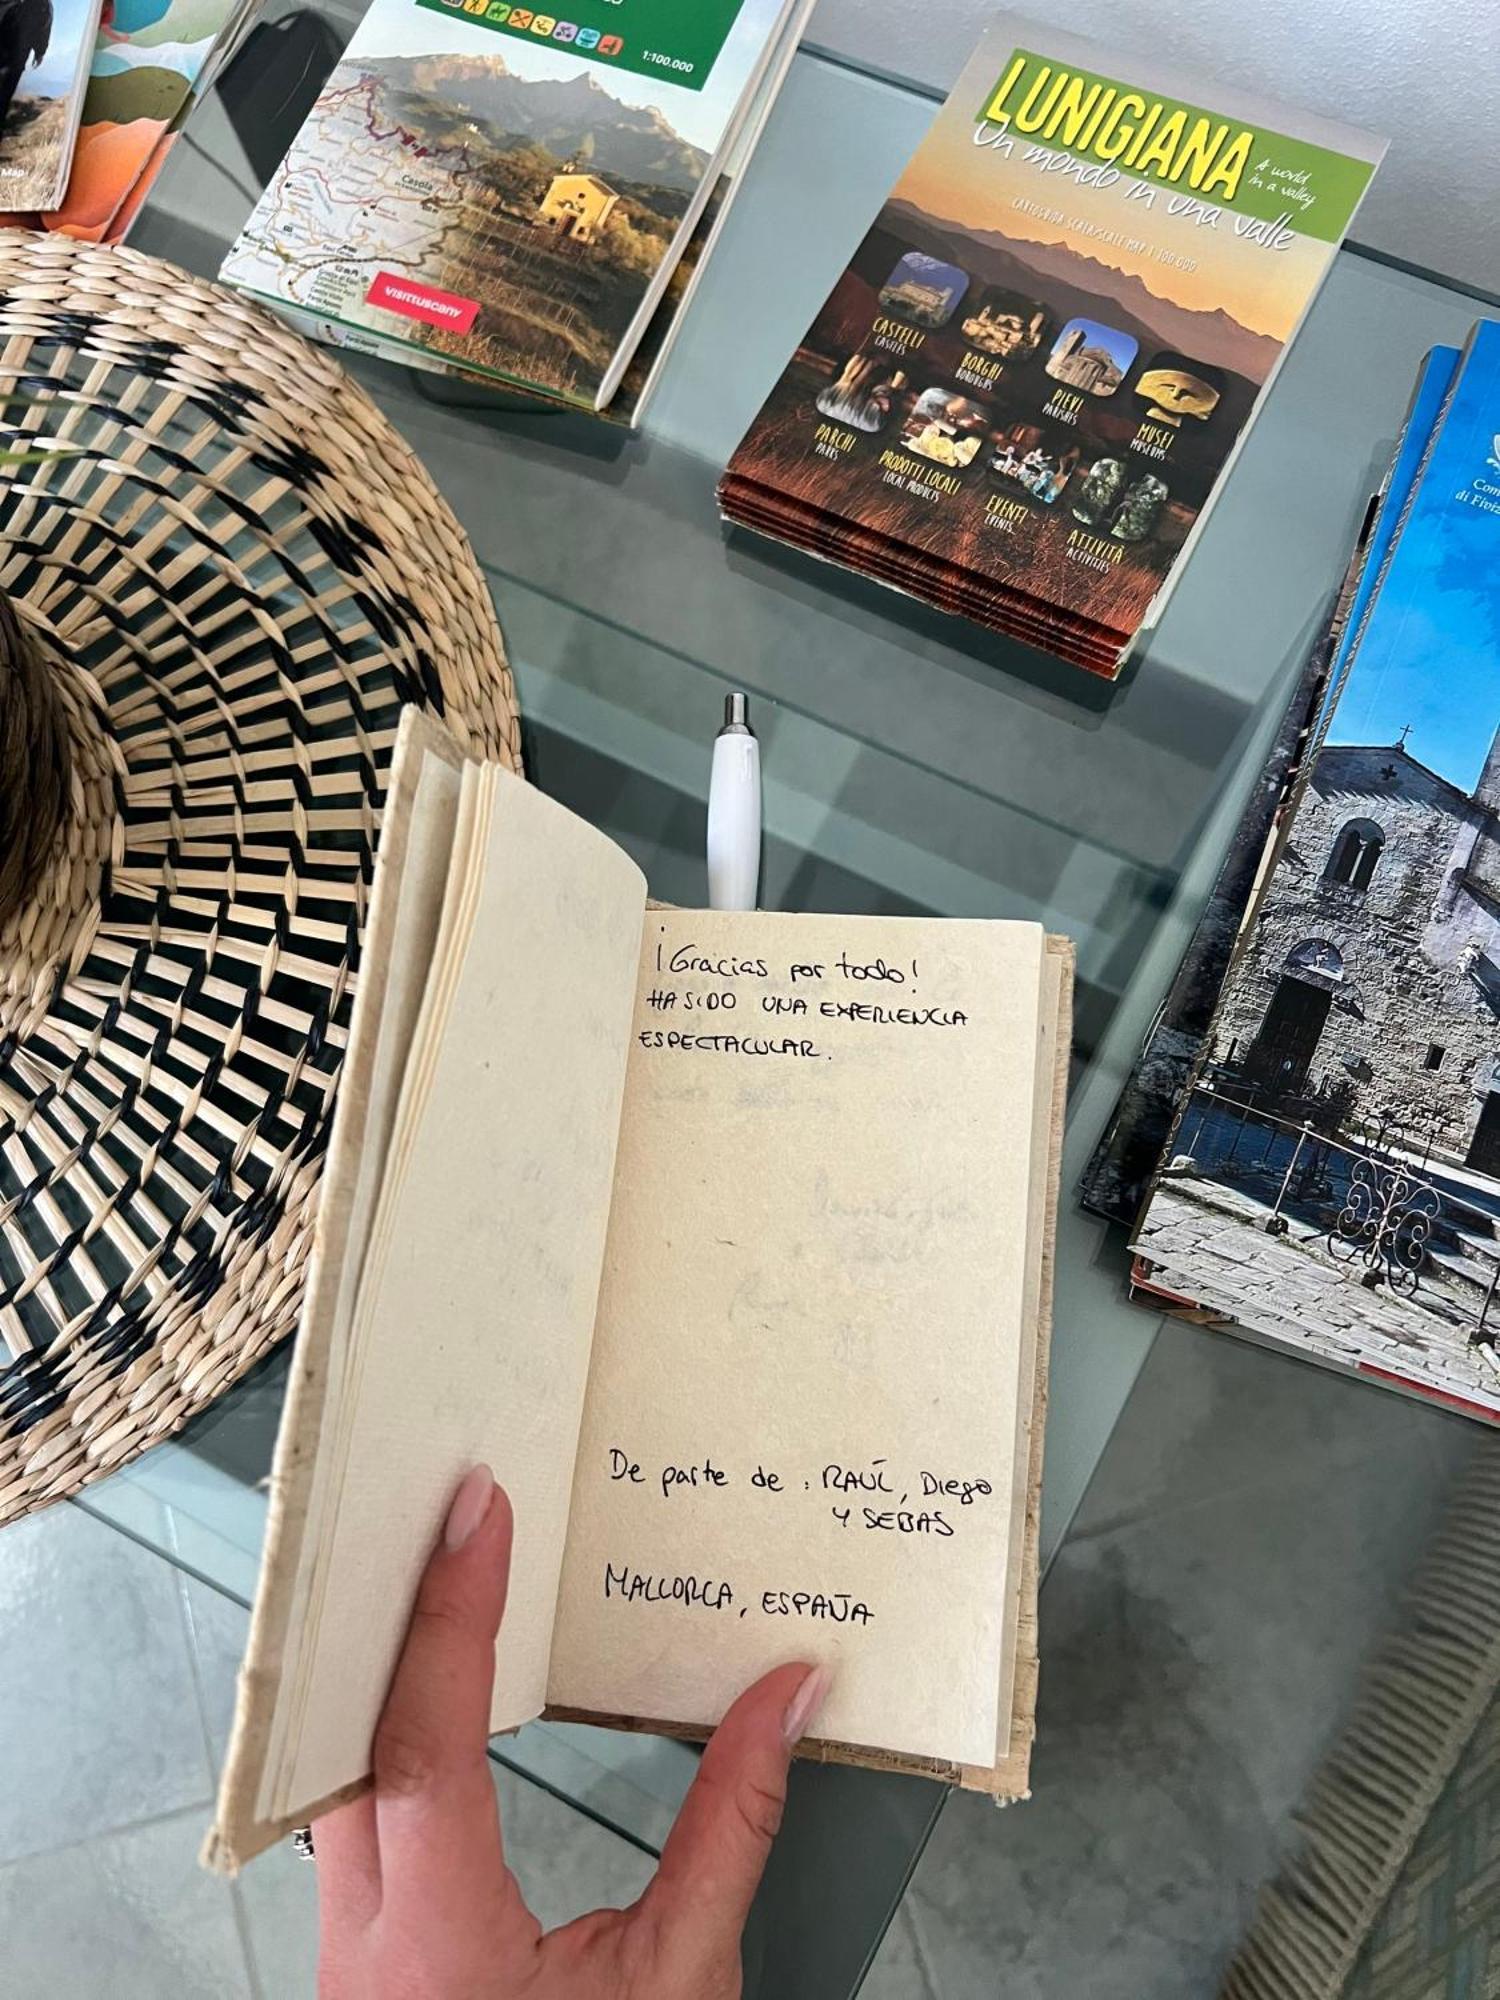 1:100.000
Casola
visittuscany
Map
LUNIGIANA
Un mondo in una valle
A world
in a valley
CARTOGUIDA SCALA/SCALE MAP 1:100.000
CASTELLI
CASTLES
BORGHI
BOROUGHS
PIEVI
PARISHES
MUSEI
MUSEUMS
PARCHI
PARKS
PRODOTTI LOCALI
LOCAL PRODUCTS
EVENTI
EVENTS
ATTIVITÀ
ACTIVITIES
Com
di Fiviz
¡Gracias por todo!
HA SIDO UNA EXPERIENCIA
ESPECTACULAR.
De parte de: RAÚL, Diego
Y SEBAS
MALLORCA, ESPAÑA